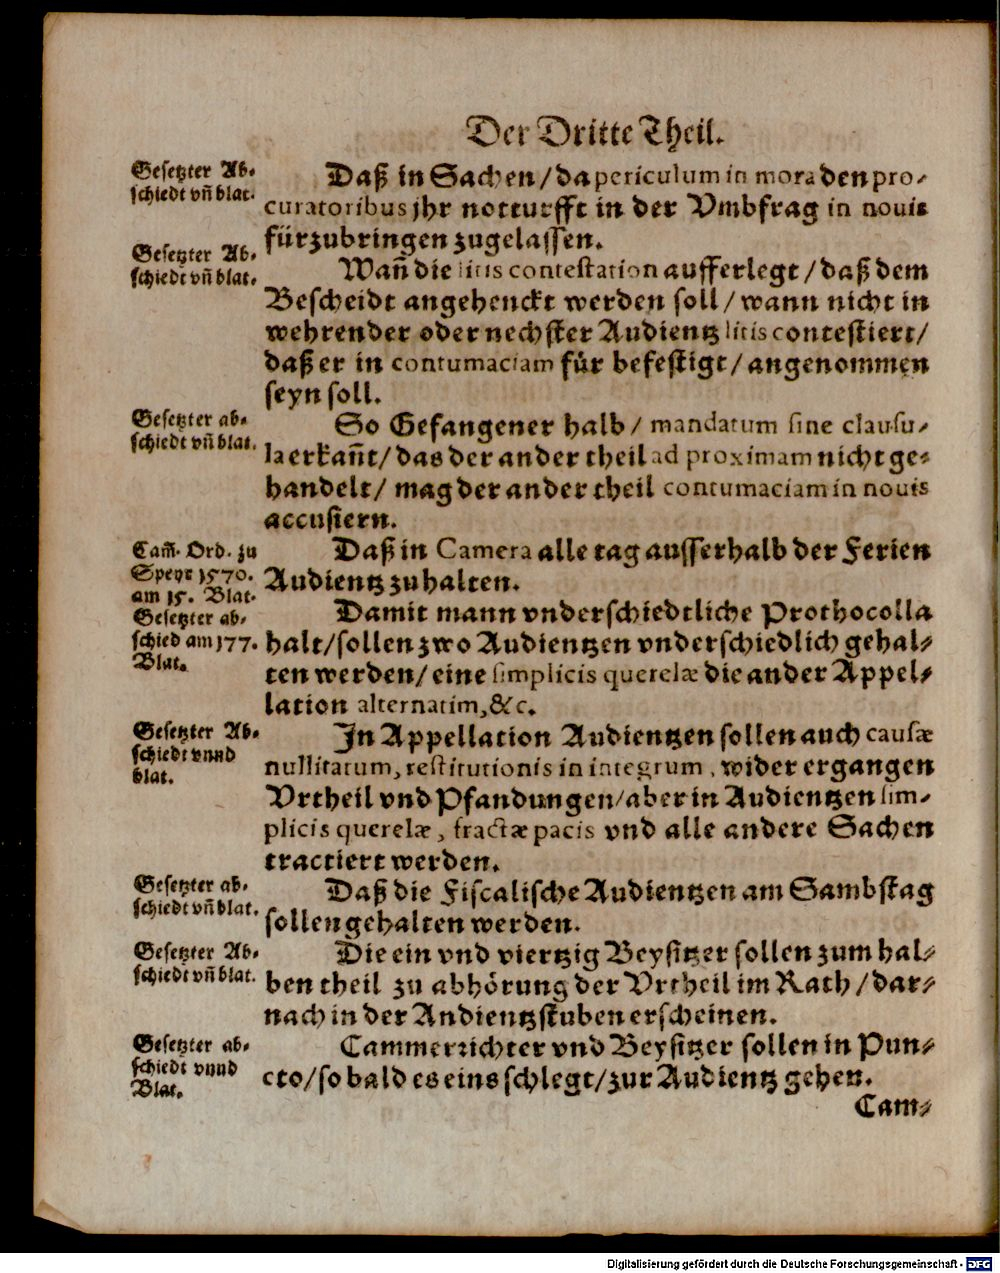 Der Dritte Theil.
Gesetzter Ab-
schiedt vñ blat.
Daß in Sachen/da periculum in mora den pro-
curatoribus jhr notturfft in der Vmbfrag in nouis
fürzubringen zugelassen.
Gesetzter Ab-
schiedt vñ blat.
Wañ die litis contestation aufferlegt/daß dem
Bescheidt angehenckt werden soll/wann nicht in
wehrender oder nechster Audientz litis contestiert/
daß er in contumaciam für befestigt/angenommen
seyn soll.
Gesetzter ab-
schiedt vñ blat.
So Gefangener halb/ mandatum sine clausu-
la erkañt/das der ander theil ad proximam nicht ge-
handelt/ mag der ander theil contumaciam in nouis
accusiern.
Cam̃. Ord. zu
Speyr 1570.
am 15. Blat.
Daß in Camera alle tag ausserhalb der Ferien
Audientz zu halten.
Gesetzter ab-
schied am 177.
Blat.
Damit mann vnderschiedtliche Prothocolla
halt/sollen zwo Audientzen vnderschiedlich gehal-
ten werden/eine simplicis querelæ die ander Appel-
lation alternatim, &c.
Gesetzter Ab-
schiedt vnnd
blat.
In Appellation Audientzen sollen auch causæ
nullitatum, restitutionis in integrum, wider ergangen
Vrtheil vnd Pfandungen/aber in Audientzen sim-
plicis querelæ, fractæ pacis vnd alle andere Sachen
tractiert werden.
Gesetzter ab-
schiedt vñ blat.
Daß die Fiscalische Audientzen am Sambstag
sollen gehalten werden.
Gesetzter Ab-
schiedt vñ blat.
Die ein vnd viertzig Beysitzer sollen zum hal-
ben theil zu abhörung der Vrtheil im Rath/dar-
nach in der Andientzstuben erscheinen.
Gesetzter ab-
schiedt vnnd
Blat.
Cammerrichter vnd Beysitzer sollen in Pun-
cto/so bald es eins schlegt/zur Audientz gehen.
Cam-
Digitalisierung gefördert durch die Deutsche Forschungsgemeinschaft - DFG